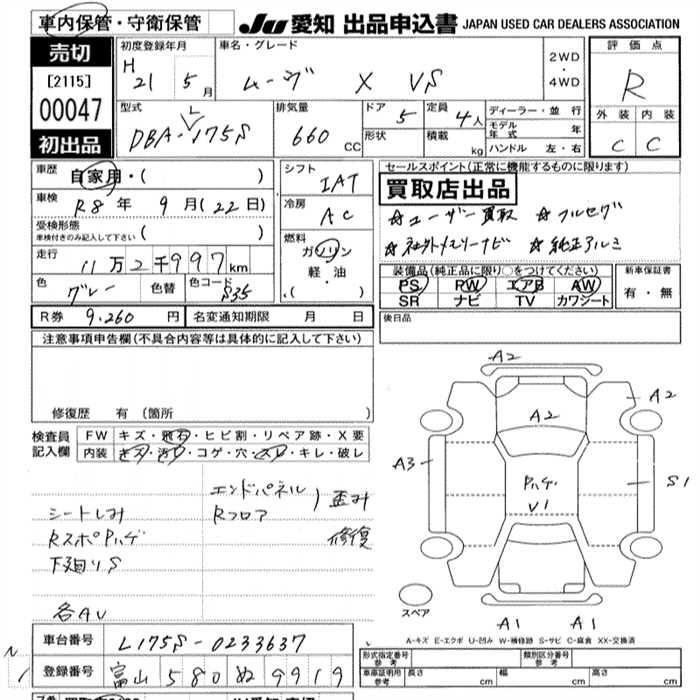 車内保管・守衛保管
JU 愛知 出品申込書 JAPAN USED CAR DEALERS ASSOCIATION
売切
[2115]
00047
初出品
初度登録年月 H 21 5月
車名・グレード ムーヴ X VS
2WD・4WD
評価点 R
外装 C 内装 C
型式 DBA-L175S
排気量 660 CC
ドア 5
形状
定員 4人
積載 kg
ディーラー・並行
モデル年式 年
ハンドル 左・右
車歴 自家用・( )
車検 R8年 9月(22日)
受検形態 車検付きのみ記入して下さい ( )
走行 11万2千997km
色 グレー 色替 色コード S35
シフト IAT
冷房 AC
燃料 ガソリン 軽油 ・( )
R券 9,260円 名変通知期限 月 日
セールスポイント(正常に機能するものに限ります)
買取店出品
☆ユーザー買取 ☆フルセグ
☆社外メモリーナビ ☆純正アルミ
装備品(純正品に限り○をつけてください)
PS PW エアB AW
SR ナビ TV カワシート
新車保証書 有・無
後日品
注意事項申告欄(不具合内容等は具体的に記入して下さい)
修復歴 有(箇所 )
検査員記入欄
FW キズ・飛石・ヒビ割・リペア跡・X要
内装 キズ・汚レ・コゲ・穴・スレ・キレ・破レ
エンドパネル
Rフロア
) 歪み
修復
シートしみ
RスポPハゲ
下廻りS
各AU
A2
A2
A2
A3
Pハゲ
V1
S1
A1 A1
スペア
A-キズ E-エクボ U-凹み W-補修跡 S-サビ C-腐食 XX-交換済
車台番号 L175S-0233637
登録番号 富山 580 ぬ 9919
形式指定番号 参考
類別区分番号 参考
車庫証明用 参考 長さ cm 幅 cm 高さ cm